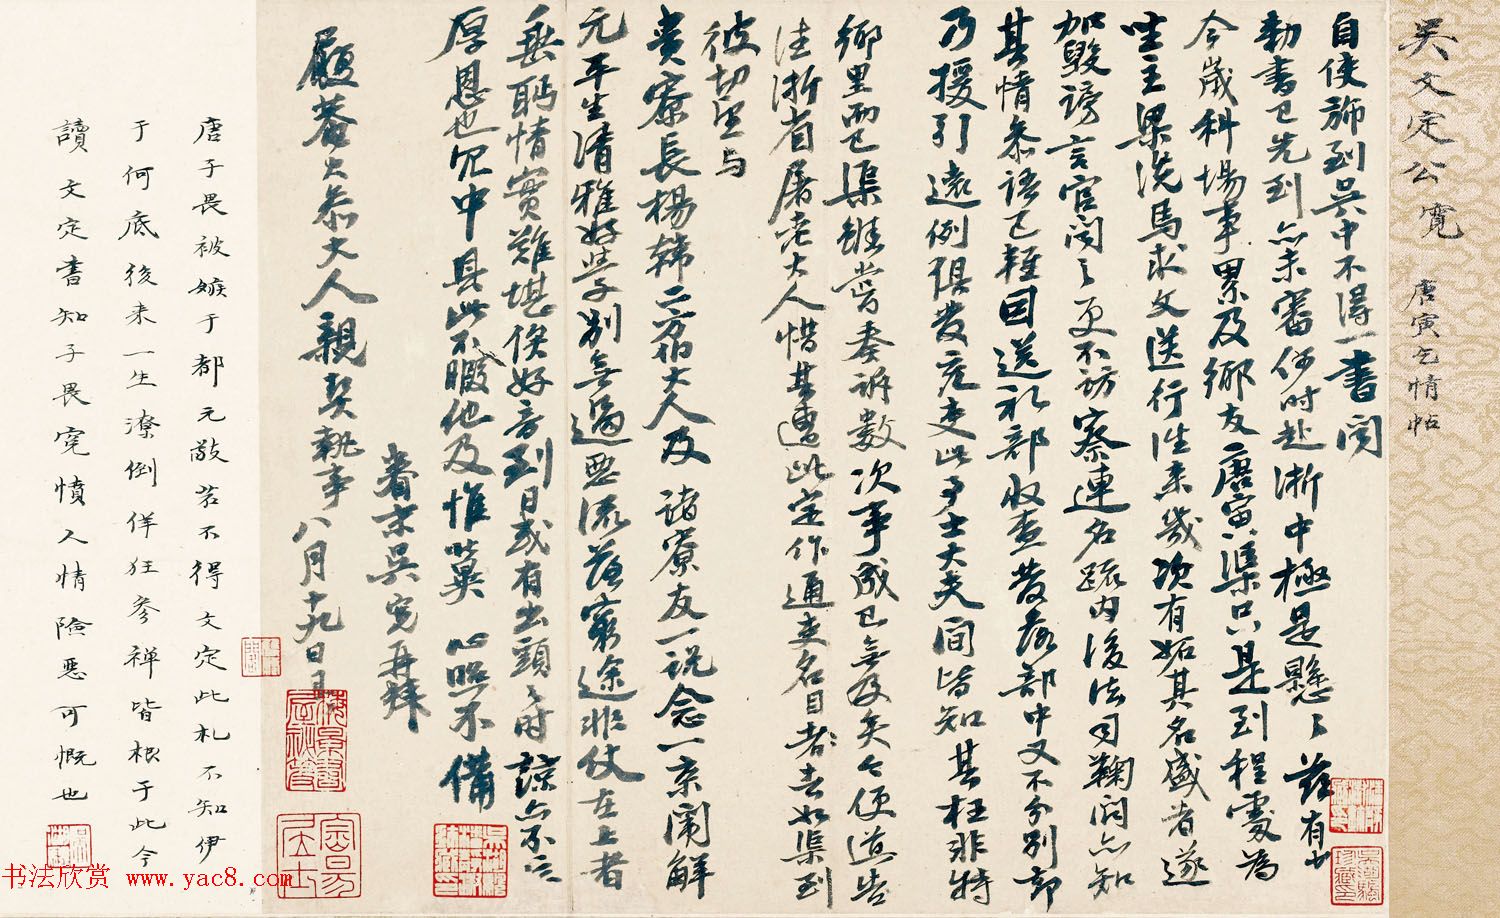 吳文定公寬
唐寅乞情帖
自使旆到吳中不得一書聞
勅書已先到亦未審何時赴浙中極是懸懸茲有
今歲科場事累及鄉友唐寅渠只是到程處為
坐主梁洗馬求文送行往來幾次有妬其名盛者遂
加毀謗言官聞之更不訪察連名疏內後法司鞫問亦知
其情參語已輕因送禮部收查發落部中又不分別却
乃援引遠例俱發充吏此事士大夫間皆知其枉非特
鄉里而已渠雖嘗奏訴數次事成已無及矣今便道告
往浙省屠老大人惜其遭此定作通吏名目者去如渠到
彼切望與
貴寮長楊韓二方伯大人及諸寮友一說念一京闈解
元平生清雅好學別無過惡流落窮途非仗在上者
垂眄情實難堪俟好音到日或有出頭之時諒亦不忘
厚恩也冗中具此不暇他及惟冀心照不備
眷末吳寬再拜
履菴大參大人親契執事八月十九日
唐子畏被嫉于都元敬若不得文定此札不知伊
于何底後來一生潦倒佯狂參禪皆根于此今
讀文定書知子畏冤憤人情險惡可慨也
书法欣赏 www.yac8.com